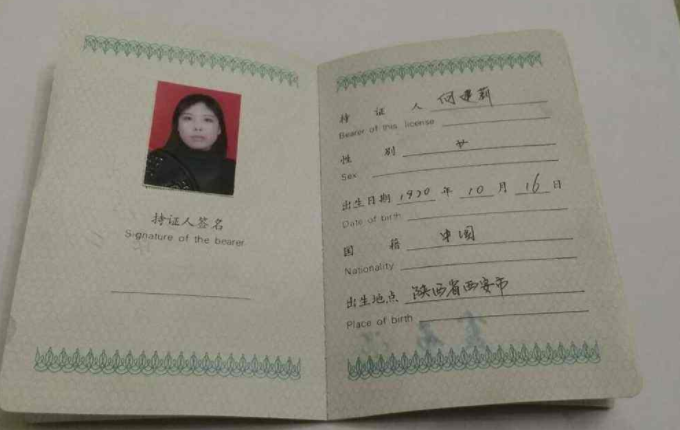 持证人签名
Signature of the bearer
持 证 人 何建莉
Bearer of this license
性 别 女
Sex
出生日期 1970 年 10 月 16 日
Date of birth
国 籍 中国
Nationality
出生地点 陕西省西安市
Place of birth